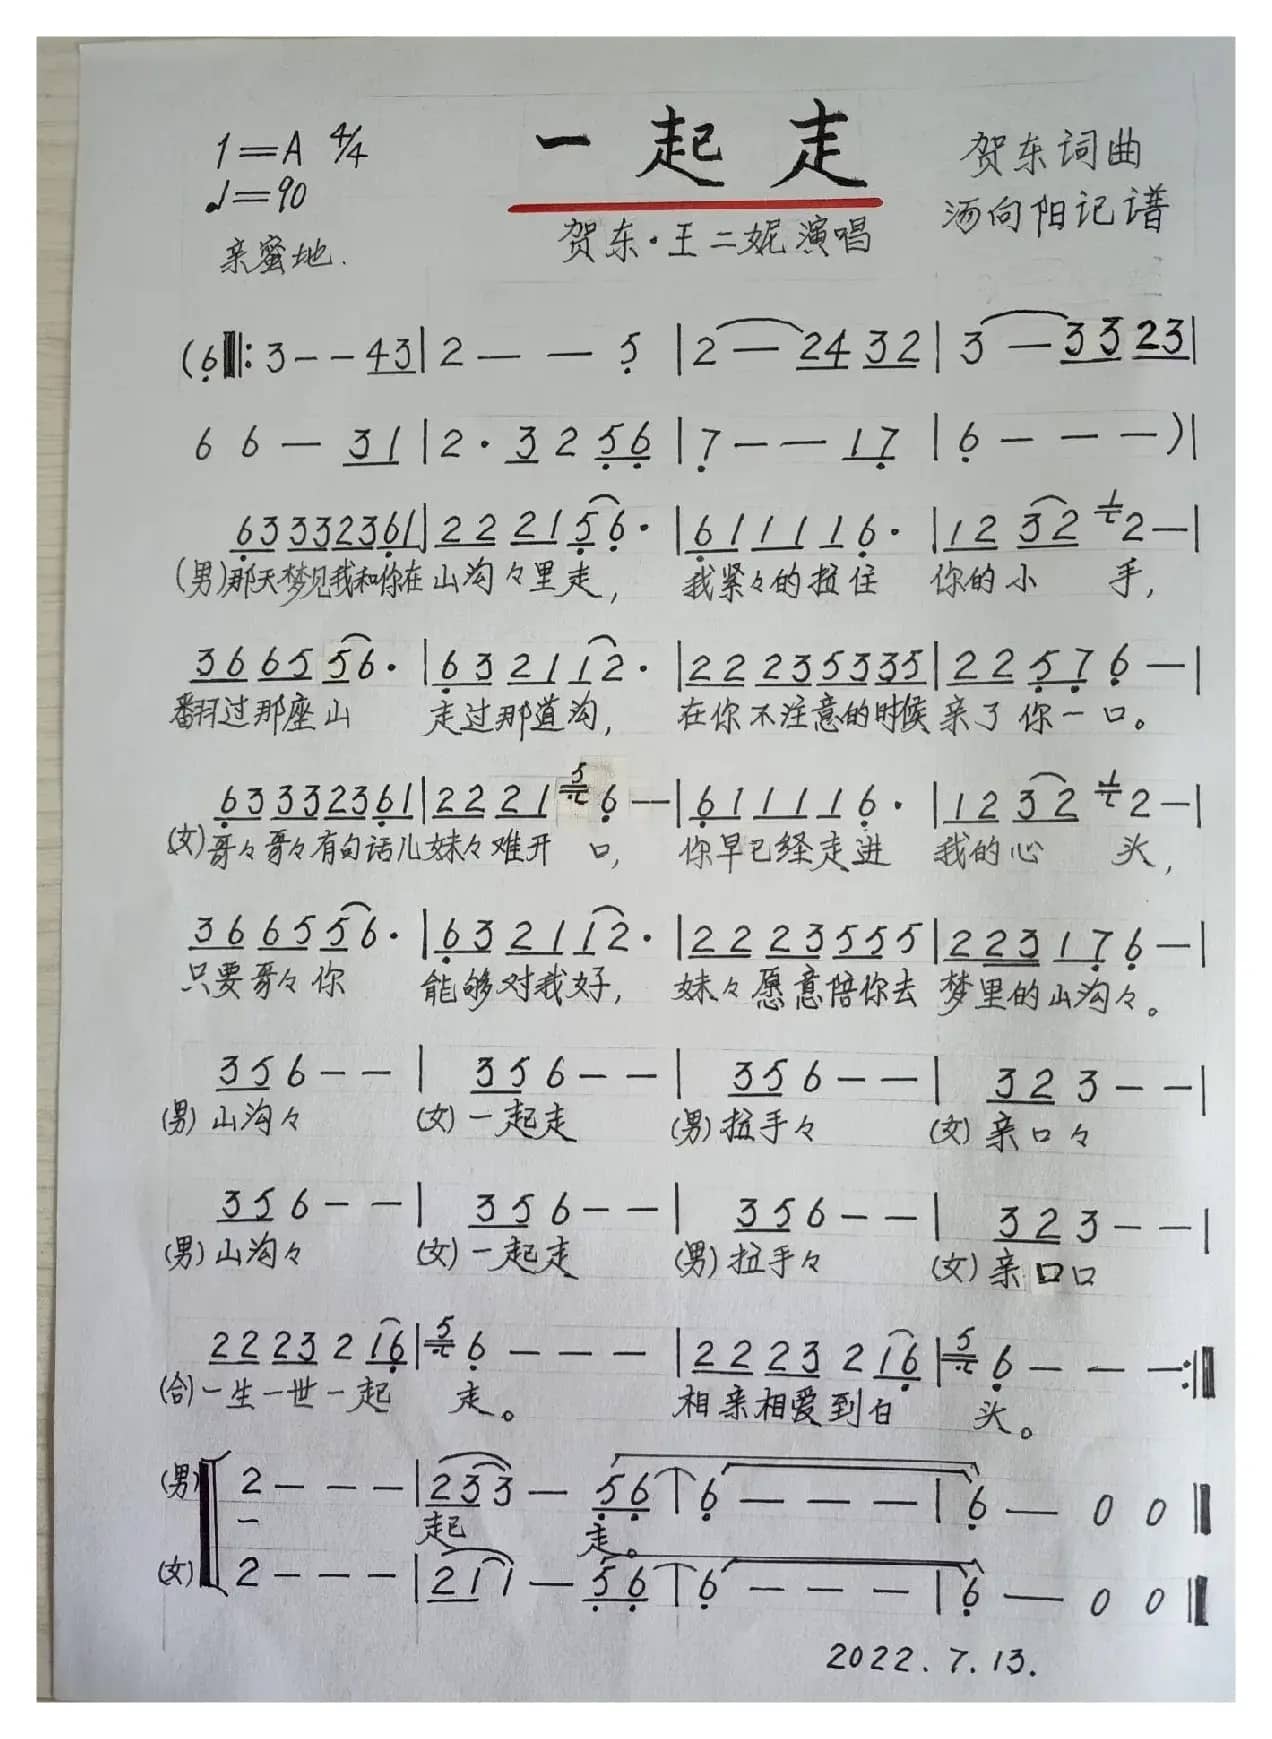 1=A 4/4
♩=90
亲蜜地.
一起走
贺东·王二妮演唱
贺东词曲
汤向阳记谱
(6̣‖: 3 - - 43 | 2 - - 5̣ | 2 - 24 32 | 3 - 33 23 |
6 6 - 31 | 2· 3 2 5̣6̣ | 7̣ - - 17̣ | 6̣ - - - ) |
6̣3 33236̣1 | 22 21 5̣6̣· | 6̣1 11 16̣· | 12 32 1 2 - |
(男)那天梦见我和你在山沟々里走, 我紧々的拉住 你的小 手,
36 65 56· | 6̣3 21 12· | 22 235335 | 22 5̣7̣ 6̣ - |
翻过那座山 走过那道沟, 在你不注意的时候 亲了你一口。
6̣3 33236̣1 | 22 21 5 6̣ - | 6̣1 11 16̣· | 12 32 1 2 - |
(女)哥々哥々有句话儿妹々难开 口, 你早已经走进 我的心 头,
36 65 56· | 6̣3 21 12· | 22 23 555 | 223 17̣ 6̣ - |
只要哥々你 能够对我好, 妹々愿意陪你去 梦里的山沟々。
35 6 - - | 35 6 - - | 35 6 - - | 32 3 - - |
(男)山沟々 (女)一起走 (男)拉手々 (女)亲口々
35 6 - - | 35 6 - - | 35 6 - - | 32 3 - - |
(男)山沟々 (女)一起走 (男)拉手々 (女)亲口口
22 23 2 16̣ | 5 6̣ - - - | 22 23 2 16̣ | 5 6̣ - - - :‖
(合)一生一世一起 走。 相亲相爱到白 头。
(男) 2 - - - | 23 3 - 5̣6̣ | 6̣ - - - | 6̣ - 0 0 ‖
一 起 走。
(女) 2 - - - | 21 1 - 5̣6̣ | 6̣ - - - | 6̣ - 0 0 ‖
2022.7.13.